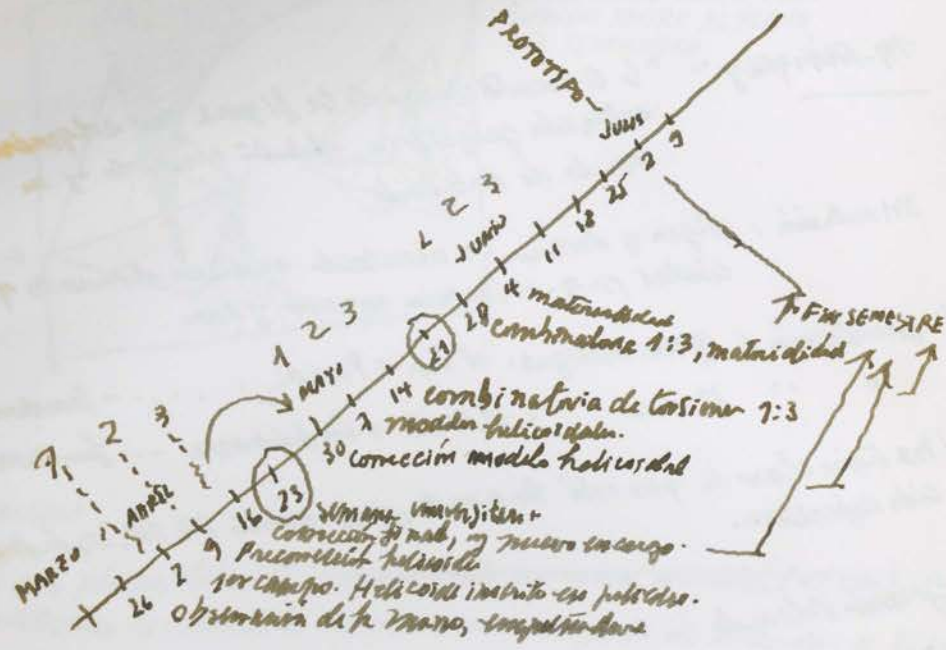 PROTOTIPO
JULIO
9
2
25
18
11
1 2 3
JUNIO
4 materialidad
28 combinatoria 1:3, materialidad
FIN SEMESTRE
21
1 2 3
MAYO
14 combinatoria de torsiones 1:3
7 modelos helicoidales.
30 corrección modelo helicoidal
1 2 3
MARZO
ABRIL
23 semana universitaria
16 corrección final, y nuevo encargo.
9 Precorrección helicoide
2 por campo. Helicoide inscrito en poliedro.
26 observación de la mano, empuñadura